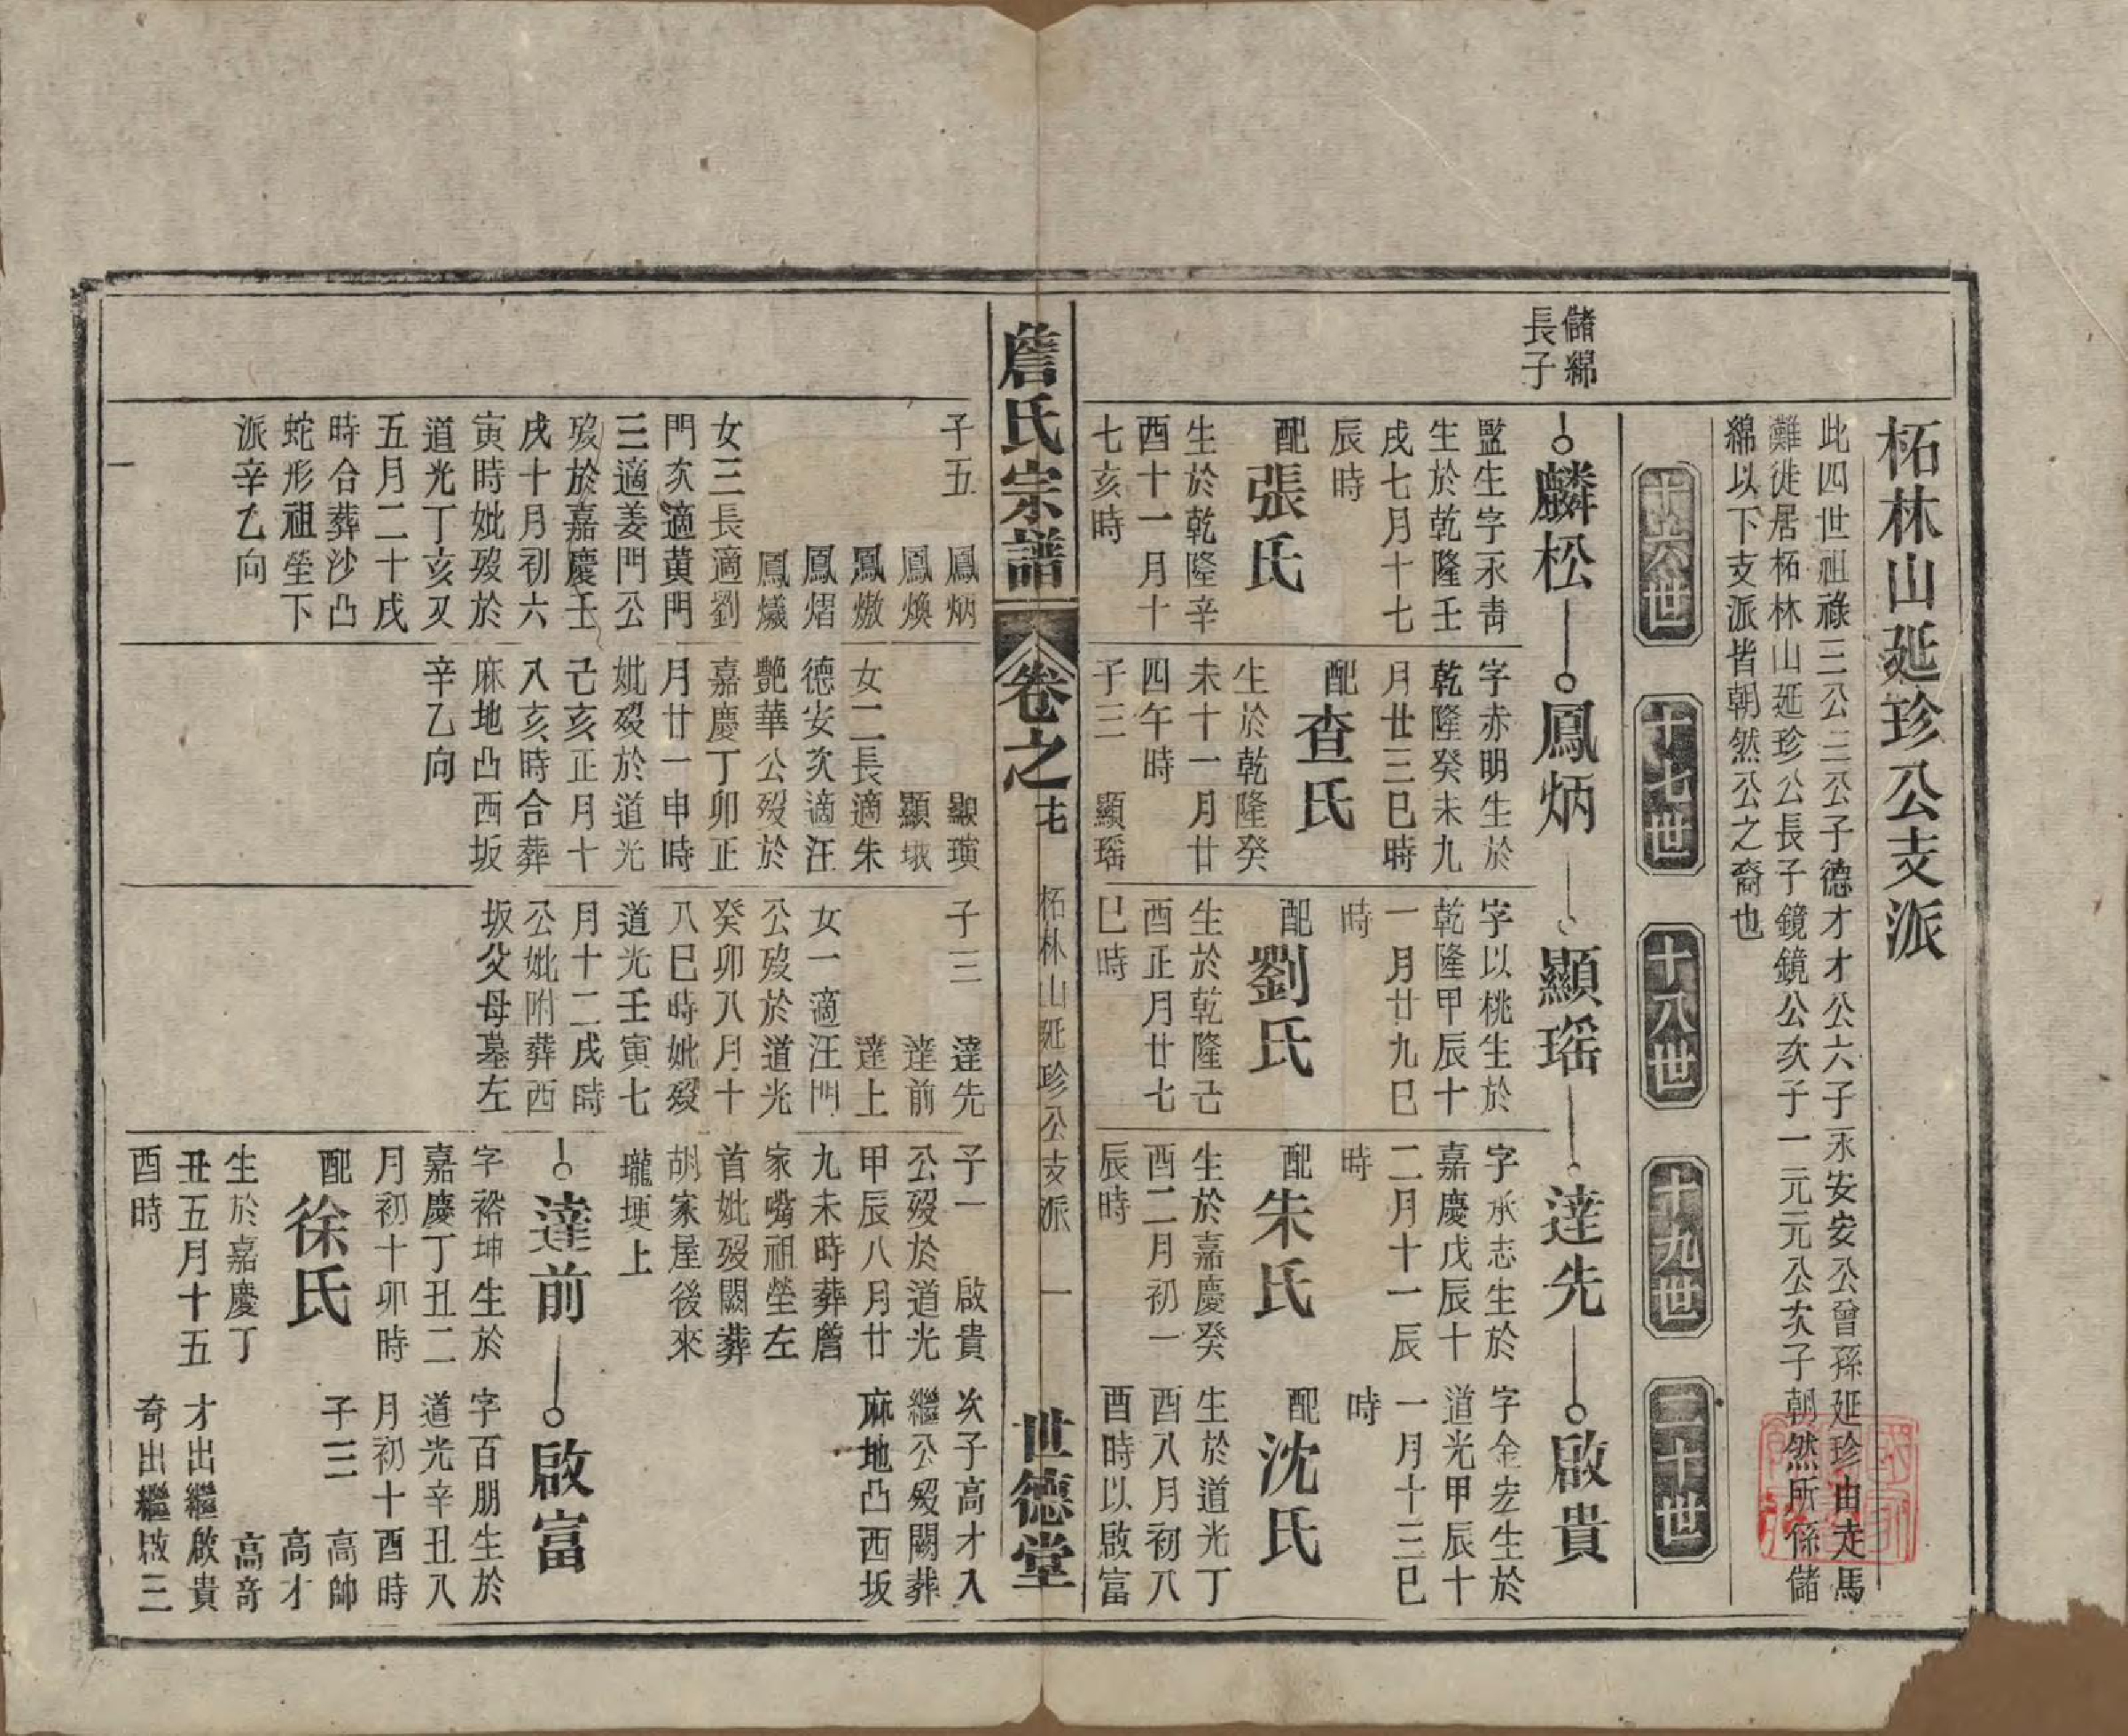 柘林山延珍公支派
此四世祖祿三公三公子德才才公六子永安安公曾孫延珍由走馬
難徙居柘林山延珍公長子鏡鏡公次子一元元公次子朝然所係儲
綿以下支派皆朝然公之裔也
十六世
十七世
十八世
十九世
二十世
儲綿
長子
麟松
監生字永青
生於乾隆壬
戌七月十七
辰時
配張氏
生於乾隆辛
酉十一月十
七亥時
子五
鳳炳
鳳煥
鳳燉
鳳熠
鳳爔
女三長適劉
門次適黃門
三適姜門公
歿於嘉慶壬
戌十月初六
寅時妣歿於
道光丁亥又
五月二十戌
時合葬沙凸
蛇形祖塋下
派辛乙向
鳳炳
字赤明生於
乾隆癸未九
月廿三巳時
配查氏
生於乾隆癸
未十一月廿
四午時
子三
顯瑤
顯璜
顯珴
女二長適朱
德安次適汪
艷華公歿於
嘉慶丁卯正
月廿一申時
妣歿於道光
己亥正月十
八亥時合葬
麻地凸西坂
辛乙向
顯瑤
字以桃生於
乾隆甲辰十
一月廿九巳
時
配劉氏
生於乾隆己
酉正月廿七
巳時
子三
達先
達前
達上
女一適汪門
公歿於道光
癸卯八月十
八巳時妣歿
道光壬寅七
月十二戌時
公妣附葬西
坂父母墓左
達先
字承志生於
嘉慶戊辰十
二月十一辰
時
配朱氏
生於嘉慶癸
酉二月初一
辰時
子一
啟貴
公歿於道光
甲辰八月廿
九未時葬詹
家嘴祖塋左
首妣歿闕葬
胡家屋後來
壠埂上
啟貴
字金宏生於
道光甲辰十
一月十三巳
時
配沈氏
生於道光丁
酉八月初八
酉時以啟富
次子高才入
繼公歿闕葬
麻地凸西坂
達前
字裕坤生於
嘉慶丁丑二
月初十卯時
配徐氏
生於嘉慶丁
丑五月十五
酉時
啟富
字百朋生於
道光辛丑八
月初十酉時
子三
高帥
高才
高奇
才出繼啟貴
奇出繼啟三
詹氏宗譜
卷之
柘林山延珍公支派
一
世德堂